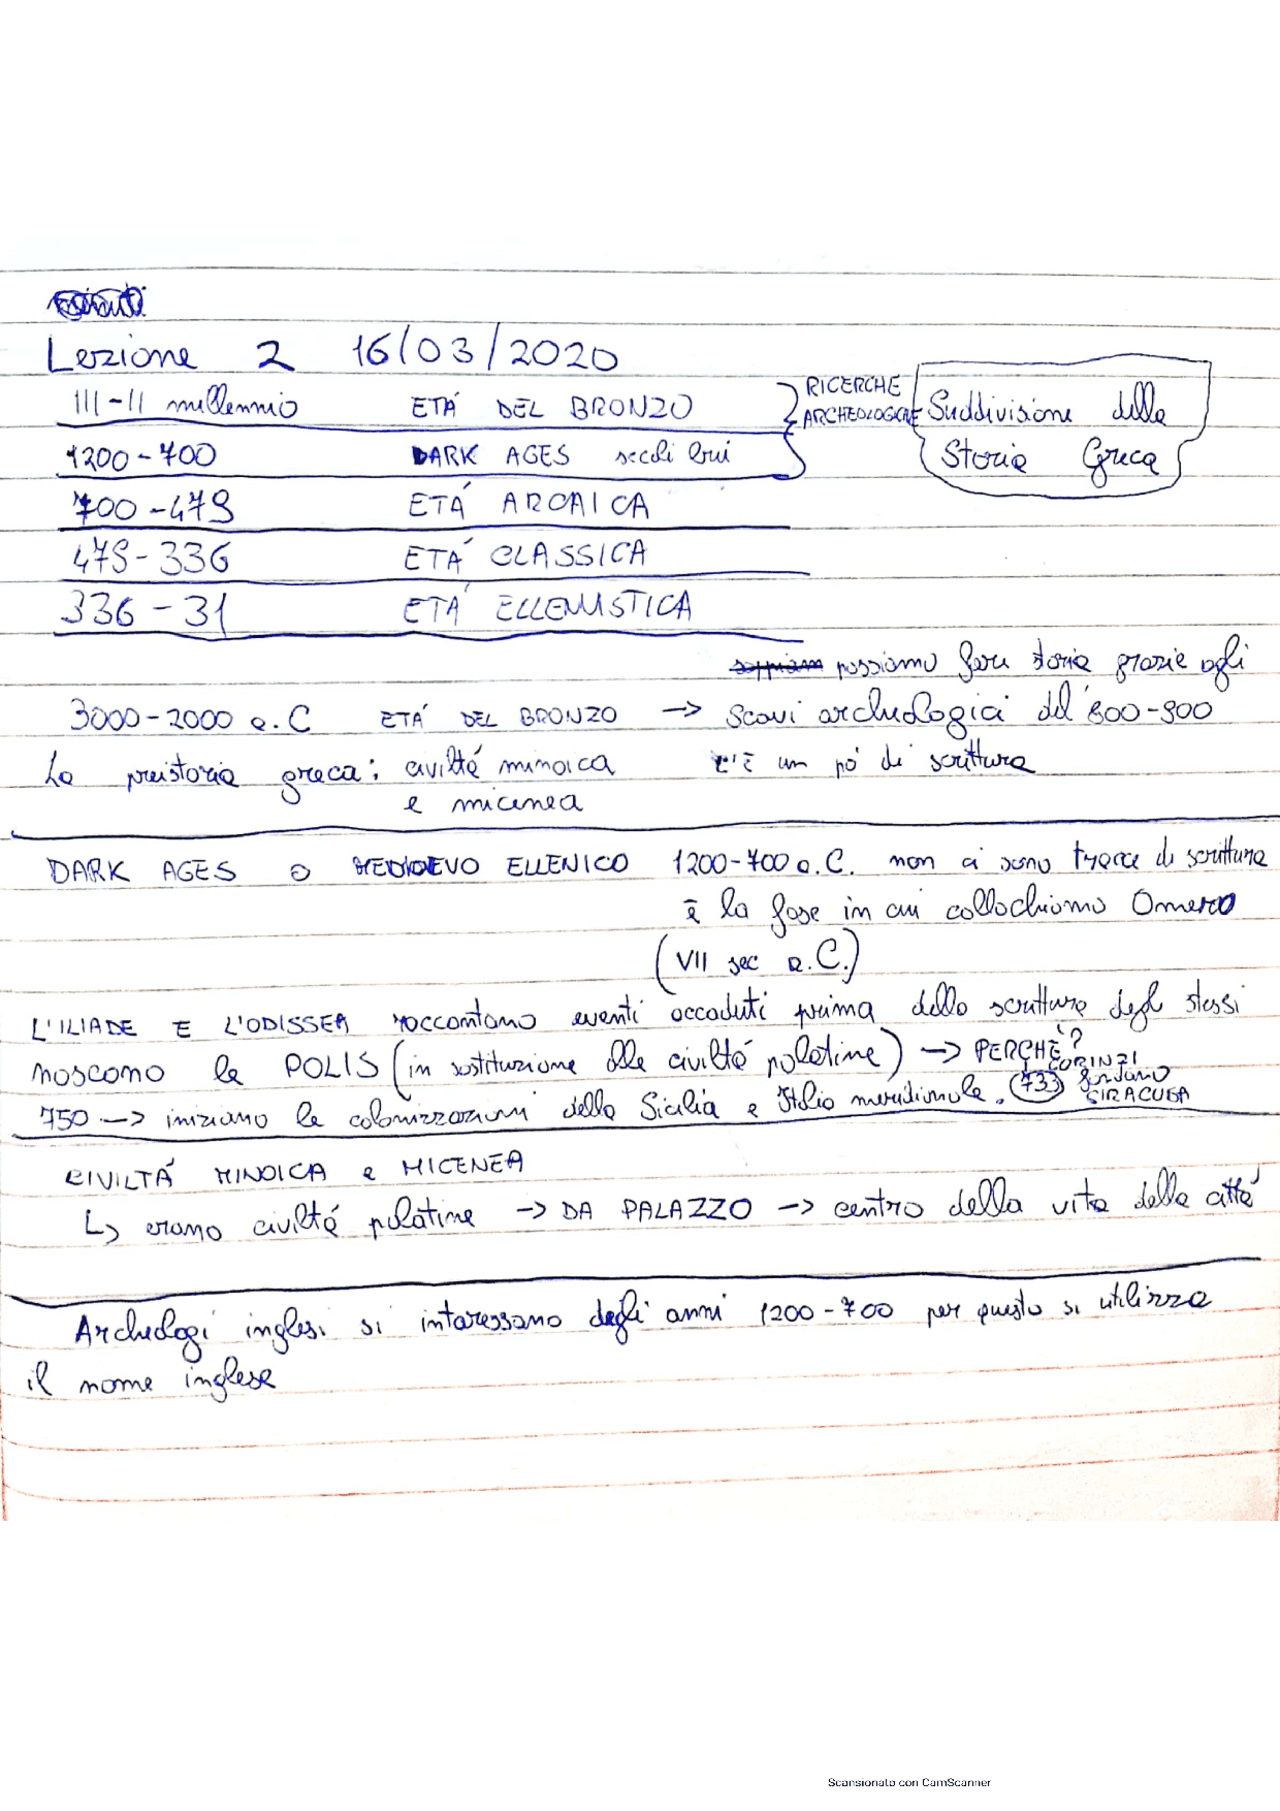 Lezione 2 16/03/2020
III-II millennio ETÁ DEL BRONZO
RICERCHE
ARCHEOLOGICHE
Suddivisione della
Storia Greca
1200-700 DARK AGES secoli bui
700-479 ETÁ ARCAICA
479-336 ETÁ CLASSICA
336-31 ETÁ ELLENISTICA
possiamo fare storia grazie agli
3000-2000 a.C ETÁ DEL BRONZO -> Scavi archeologici del '800-900
La preistoria greca: civiltá minoica c'è un pó di scrittura
e micenea
DARK AGES o MEDIOEVO ELLENICO 1200-700 a.C. non ci sono tracce di scrittura
è la fase in cui collochiamo Omero
(VII sec a.C.)
L'ILIADE E L'ODISSEA raccontano eventi accaduti prima della scrittura degli stessi
nascono le POLIS (in sostituzione alle civiltá palatine) -> PERCHÈ?
750 -> iniziano le colonizzazioni della Sicilia e Italia meridionale. 733 I CORINZI
fondano
SIRACUSA
CIVILTÁ MINOICA e MICENEA
↳ erano civiltá palatine -> DA PALAZZO -> centro della vita della cittá
Archeologi inglesi si interessano degli anni 1200-700 per questo si utilizza
il nome inglese
Scansionato con CamScanner